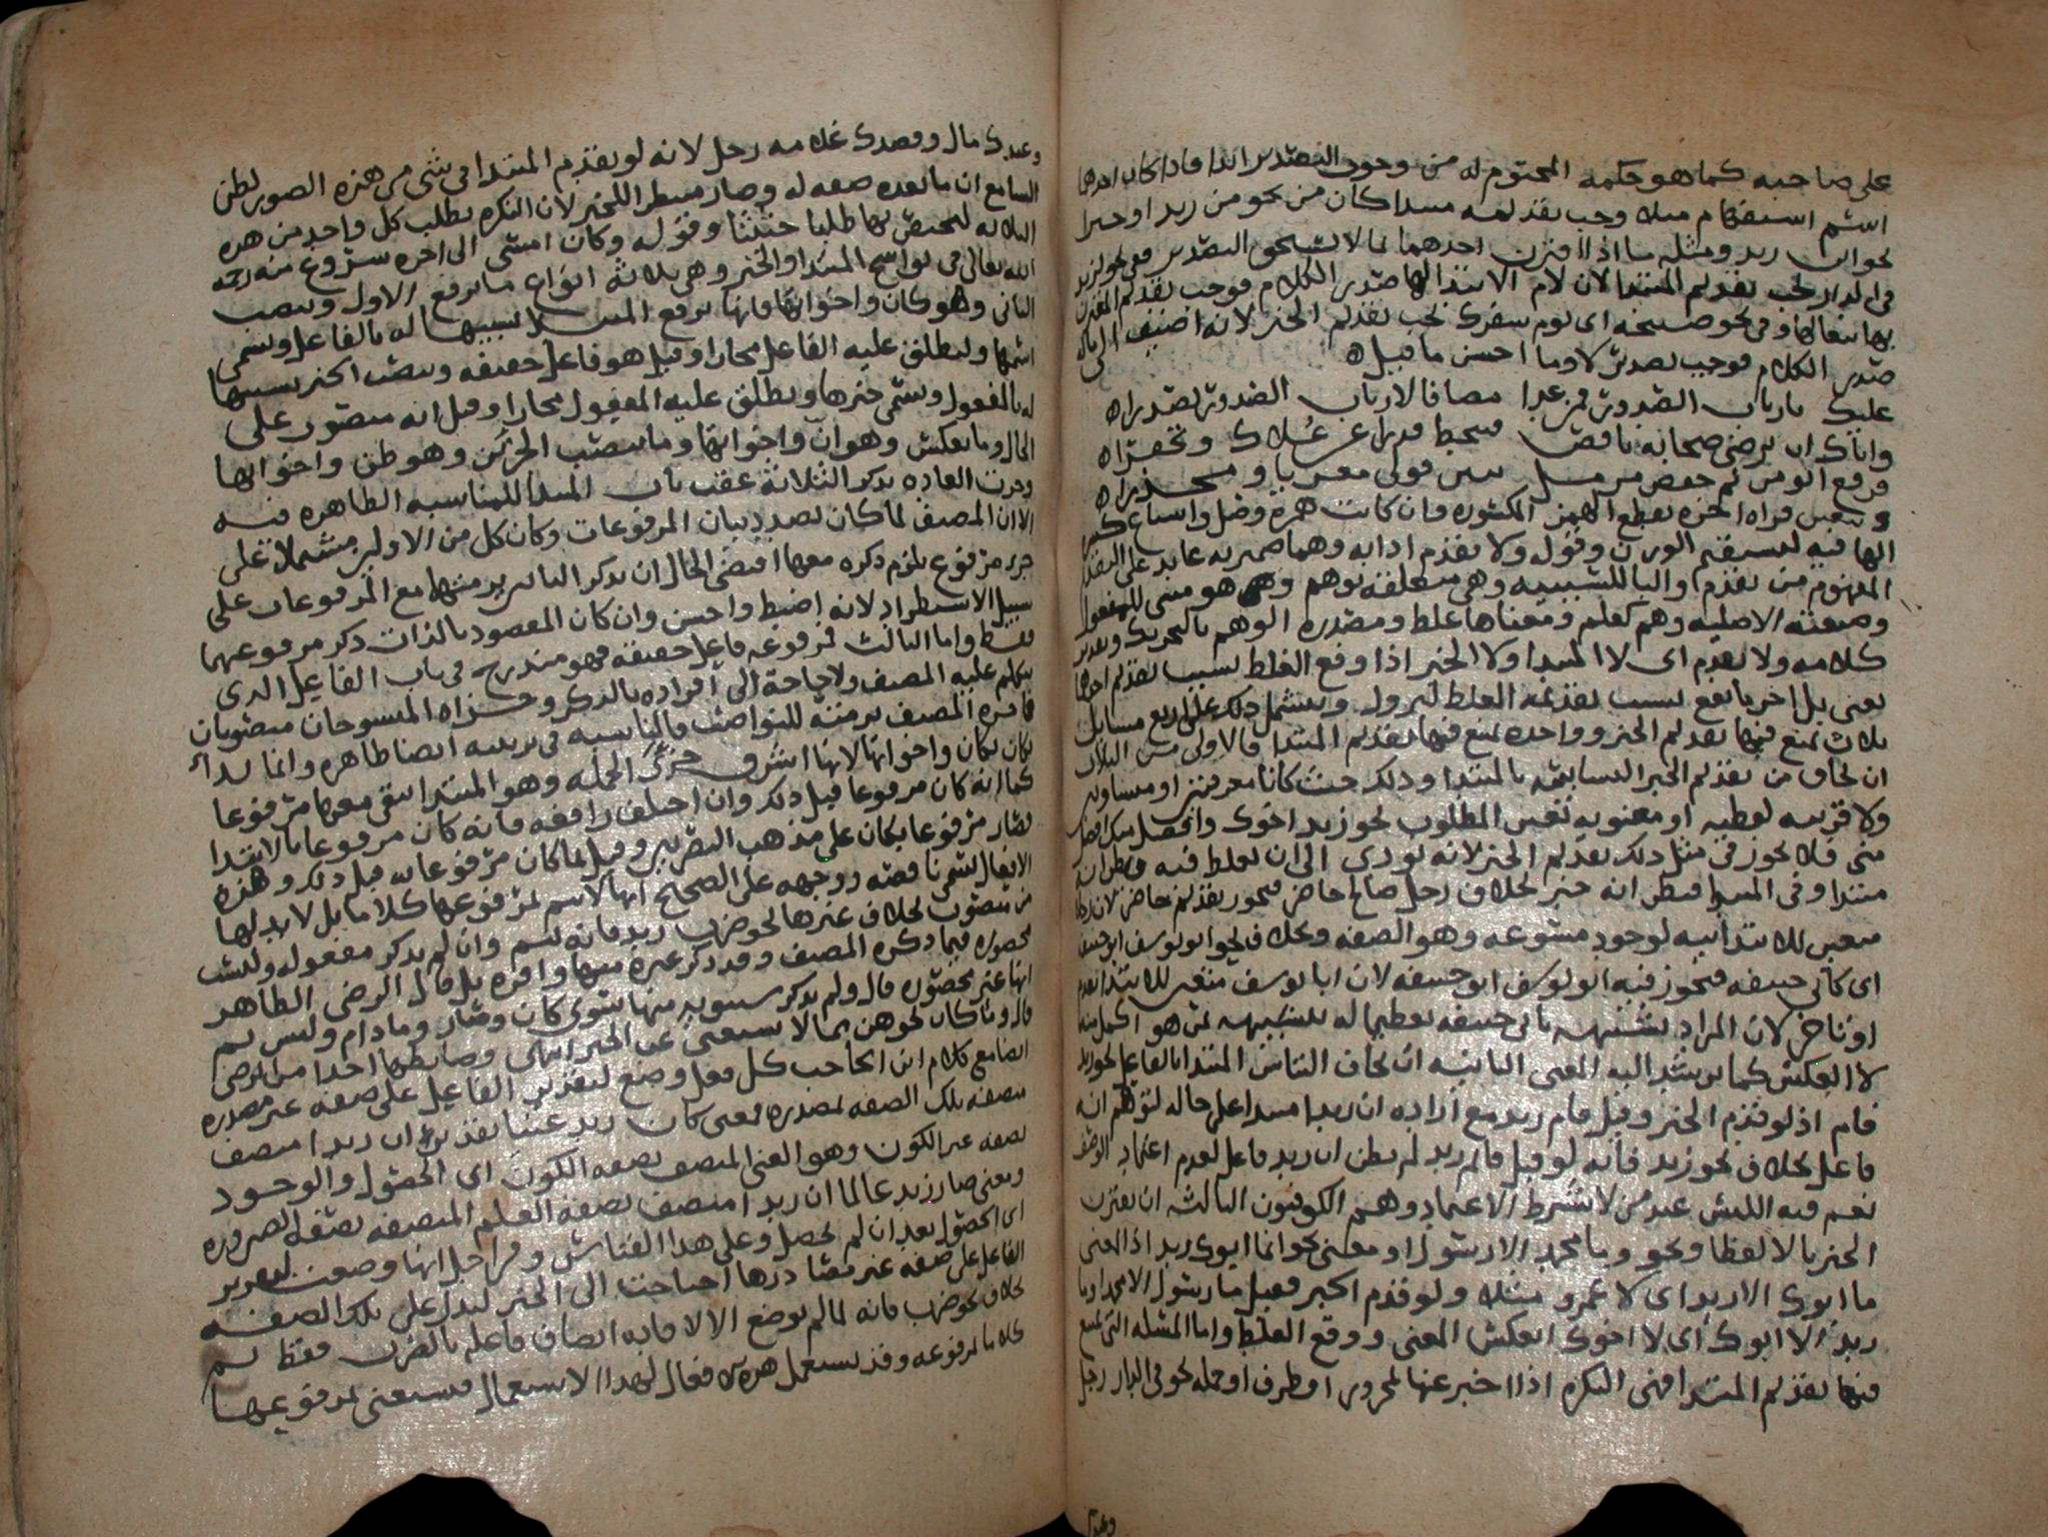 على صاحبه كما هو حكمه المحتوم له من وجوب التصدير ابدا فاذا كان احدهما
اسم استفهام مثلا وجب تقديمه مبتدا كان من نحو من زيد او خبرا
نحو اين زيد ومثله ما اذا اقترن احدهما بما لا يستحق التقدير ففي نحو لزيد
في الدار يجب تقديم المبتدا لان لام الابتدا لها صدر الكلام فوجب تقديم المقترن
بها وفي نحو صبيحة اي يوم سفرك يجب تقديم الخبر لانه اضيف الى ماله
صدر الكلام فوجب تصديره وما احسن ما قيل
عليك بارباب الصدور فمن غدا مضافا لارباب الصدور تصدرا
واياك ان ترضى صحابة ناقص فتنحط قدرا عن علاك وتحقرا
فرفع ابو من ثم خفض مزمل يبين قولي مغريا ومحذرا
الها فيه ليستقيم الوزن وقوله ولا تقدم اذا به وهما ضميره عايد على التقدم
المفهوم من تقدم والبا للسببيه وهي متعلقه بوهم وهو مبنى للمفعول
وصيغته الاصليه وهم كعلم ومعناها غلط ومصدره الوهم بالتحريك وتقدير
كلامه ولا تقدم اى لا المبتدا ولا الخبر اذا وقع الغلط بسبب تقديم احدهما
يعنى بل اخر ما يقع بسبب تقديمه الغلط ليزول ويشمل ذلك على اربع مسايل
ثلاث يمتنع فيها تقديم الخبر وواحده يمتنع فيها تقديم المبتدا فالاولى من الثلاث
ان يخاف من تقديم الخبر التباسه بالمبتدا وذلك حيث كانا معرفتين او متساويين
ولا قرينه لفظيه او معنويه تعين المطلوب نحو زيد اخوك وافضل منك افضل
منى فلا يجوز في مثل ذلك تقديم الخبر لانه يودي الى ان يغلط فيه فيظن انه
مبتدا وفي المبتدا فيظن انه خبر بخلاف رجل صالح حاضر فيجوز تقديم حاضر لان رجلا
متعين للابتدائيه لوجود مسوغه وهو الصفه وبخلاف نحو ابو يوسف ابو حنيفه
اى كابي حنيفه فيجوز فيه ابو يوسف ابو حنيفه لان ابا يوسف متعين للابتدا تقدم
او تاخر لان المراد تشبيهه بابي حنيفه تعظيما له بتشبيهه بمن هو اكمل منه
لا العكس كما يرشد اليه المعنى الثانيه ان يخاف التباس المبتدا بالفاعل نحو زيد
قام اذ لو قدم الخبر وقيل قام زيد مع ارادة ان زيدا مبتدا على حاله لتوهم انه
فاعل بخلاف نحو زيد قايم فانه لو قيل قايم زيد لم يظن ان زيد فاعل لعدم اعتماد الوصف
نعم فيه اللبس عند من لا يشترط الاعتماد وهم الكوفيون الثالثه ان يقترن
الخبر بالا لفظا ونحو وما محمد الا رسول او معنى نحو انما ابوك زيد اذ المعنى
ما ابوك الا زيد اى لا عمرو مثلا ولو قدم الخبر فقيل ما رسول الا محمد او ما
زيد الا ابوك اى لا اخوك انعكس المعنى ووقع الغلط واما المسئله التى يمتنع
فيها تقديم المبتدا فهى النكره اذا اخبر عنها بمجرور او ظرف او جمله نحو في الدار رجل
وعندك
وعندك مال وقصدك غلامه رجل لانه لو تقدم المبتدا في شي من هذه الصور لظن
السامع ان ما بعده صفه له وصار منتظرا للخبر لان النكره تطلب كل واحد من هذه
الثلاثه لتختص بها طلبا حثيثا وقوله وكان امسى الى اخره شروع منه رحمه
الله تعالى في نواسخ المبتدا والخبر وهي ثلاثة انواع ما يرفع الاول وينصب
الثاني وهو كان واخواتها فانها ترفع المبتدا لشبهها له بالفاعل ويسمى
اسمها ويطلق عليه الفاعل مجازا وقيل هو فاعل حقيقه وينصب الخبر تشبيها
له بالمفعول ويسمى خبرها ويطلق عليه المفعول مجازا وقيل انه منصوب على
الحال وما بعكس وهو ان واخواتها وما ينصب الجزئين وهو ظن واخواتها
وجرت العاده بذكر الثلاثة عقب باب المبتدا للمناسبه الظاهره فيه
الا ان المصنف لما كان بصدد بيان المرفوعات وكان كل من الاولين مشتملا على
جزء مرفوع يلزم ذكره معها اقتضى الحال ان يذكر الناسخين منها مع المرفوعات على
سبيل الاستطراد لانه اضبط واحسن وان كان المقصود بالذات ذكر مرفوعيهما
فقط واما الثالث فمرفوعه فاعل حقيقه فهو مندرج في باب الفاعل الذى
تكلم عليه المصنف ولا حاجة الى افراده بالذكر وجزاه المنسوخان منصوبان
فاخره المصنف برمته للنواصب والمناسبه في ترتيبه ايضا ظاهره وانما بدا
بكان واخواتها لانها اشرف جزئي الجمله وهو المبتدا يبقى معها مرفوعا
كما انه كان مرفوعا قبل ذلك وان اختلف رافعه فانه كان مرفوعا بالابتدا
فصار مرفوعا بكان على مذهب البصريين وقيل بما كان مرفوعا به قبل ذلك وهذه
الافعال تسمى ناقصه ووجهه على الصحيح انها لا يتم بمرفوعها كلاما بل لا بد لها
من منصوب بخلاف غيرها نحو ضرب زيد فانه يتم وان لم يذكر مفعوله وليست
محصوره فيما ذكره المصنف وقد ذكر غيره منها وافره بل قال الرضى الظاهر
انها غير محصوره قال ولم يذكر سيبويه منها سوى كان وصار وما دام وليس ثم
قال وما كان نحوهن مما لا يستغنى عن الخبر انتهى وضابطها اخذا من الرضى
ايضا مع كلام ابن الحاجب كل فعل وضع لتقرير الفاعل على صفه غير مصدره
متصفه تلك الصفه بمصدره فمعنى كان زيد غنيا تقديره ان زيدا متصف
بصفه غير الكون وهو الغنى المتصف بصفه الكون اى الحصول والوجود
ومعنى صار زيد عالما ان زيدا متصف بصفة العلم المتصفه بصفة الصيروره
اى الحصول بعد ان لم يحصل وعلى هذا القياس ومن اجل انها وضعت لتقرير
الفاعل على صفه غير مصادرها احتاجت الى الخبر ليدل على تلك الصفه
بخلاف نحو ضرب فانه لما لم يوضع الا لافادة اتصاف فاعله بالضرب فقط تم
كلاما بمرفوعه وقد تستعمل هذه الافعال لهذا الاستعمال فتستغنى بمرفوعها